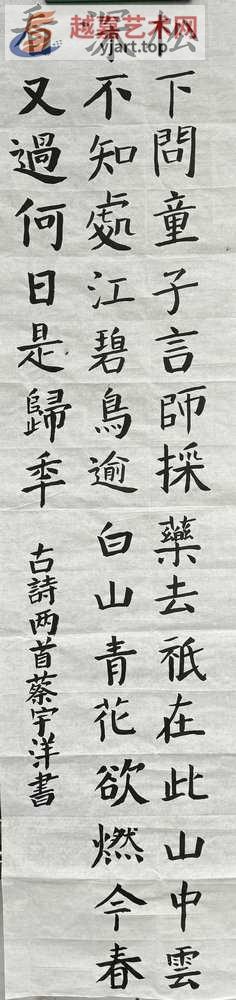 越嘉艺术网
yjart.top
松下問童子言師採藥去祇在此山中雲
深不知處江碧鳥逾白山青花欲燃今春
看又過何日是歸秊
古詩两首蔡宇洋書